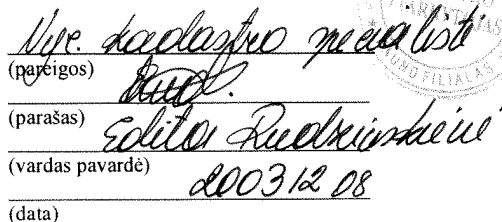 Vyr. kadastro specialistė
(pareigos)
(parašas)
Edita Rudzinskienė
(vardas pavardė)
2003 12 08
(data)
FILIALAS